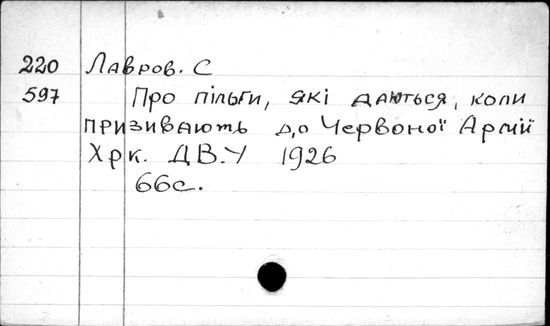 220 Лавров. С
597 Про пільги, які даються, коли
призивають до Червоної Армії
Хрк. ДВ.У 1926
66с.